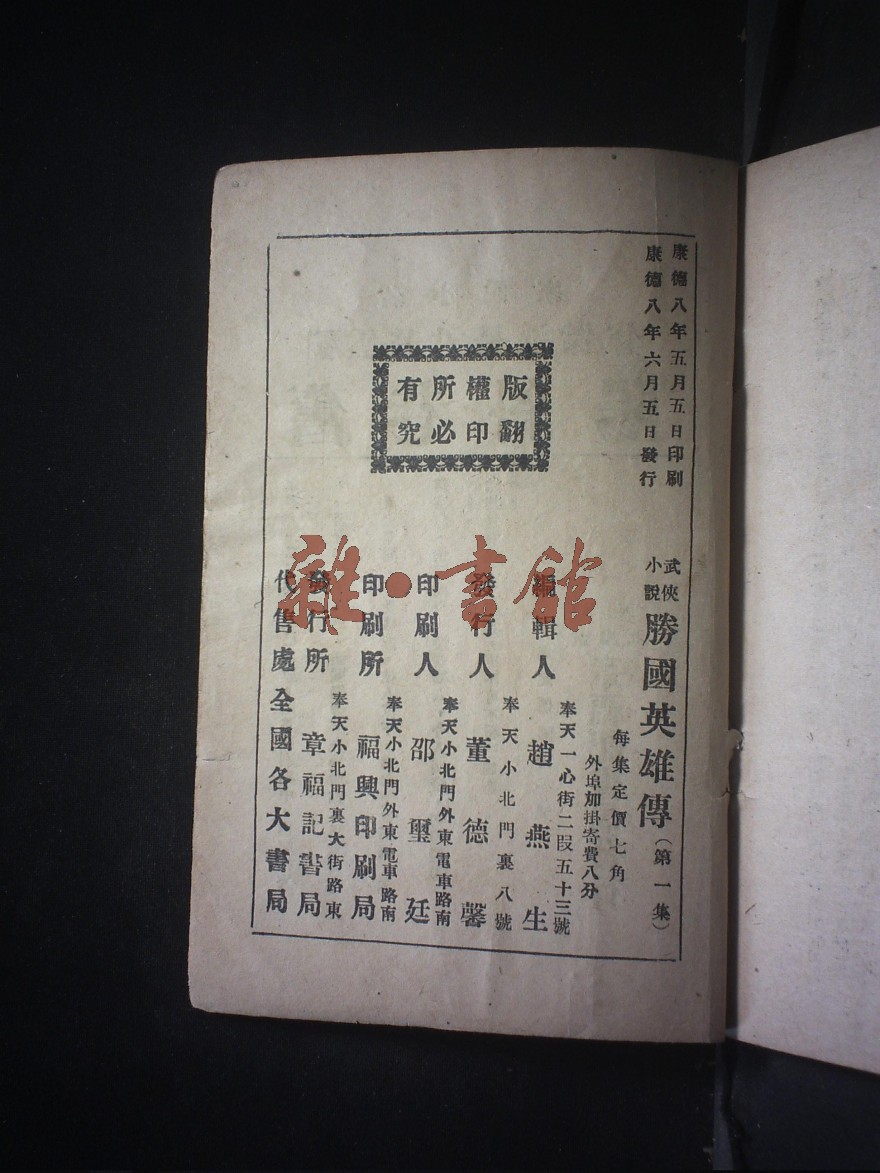 康德八年五月五日印刷
康德八年六月五日發行
武俠小說 勝國英雄傳（第一集）
每集定價七角
外埠加掛寄費八分
版權所有
翻印必究
奉天一心街二段五十三號
編輯人 趙燕生
奉天小北門裏八號
發行人 董德馨
奉天小北門外東電車路南
印刷人 邵璽廷
奉天小北門外東電車路南
印刷所 福興印刷局
奉天小北門裏大街路東
發行所 章福記書局
代售處全國各大書局
雜·書館